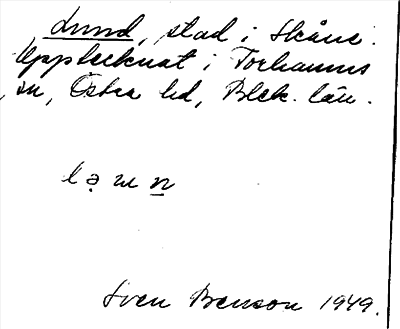 Lund, stad i Skåne.
Upptecknat i Torhamns
sn, Östra hd, Blek. län.
Sven Benson 1949.